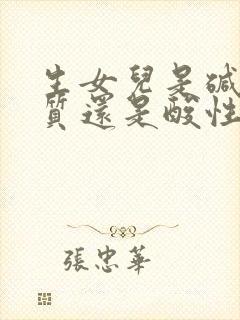 生女兒是碱
質還是酸性
張忠華